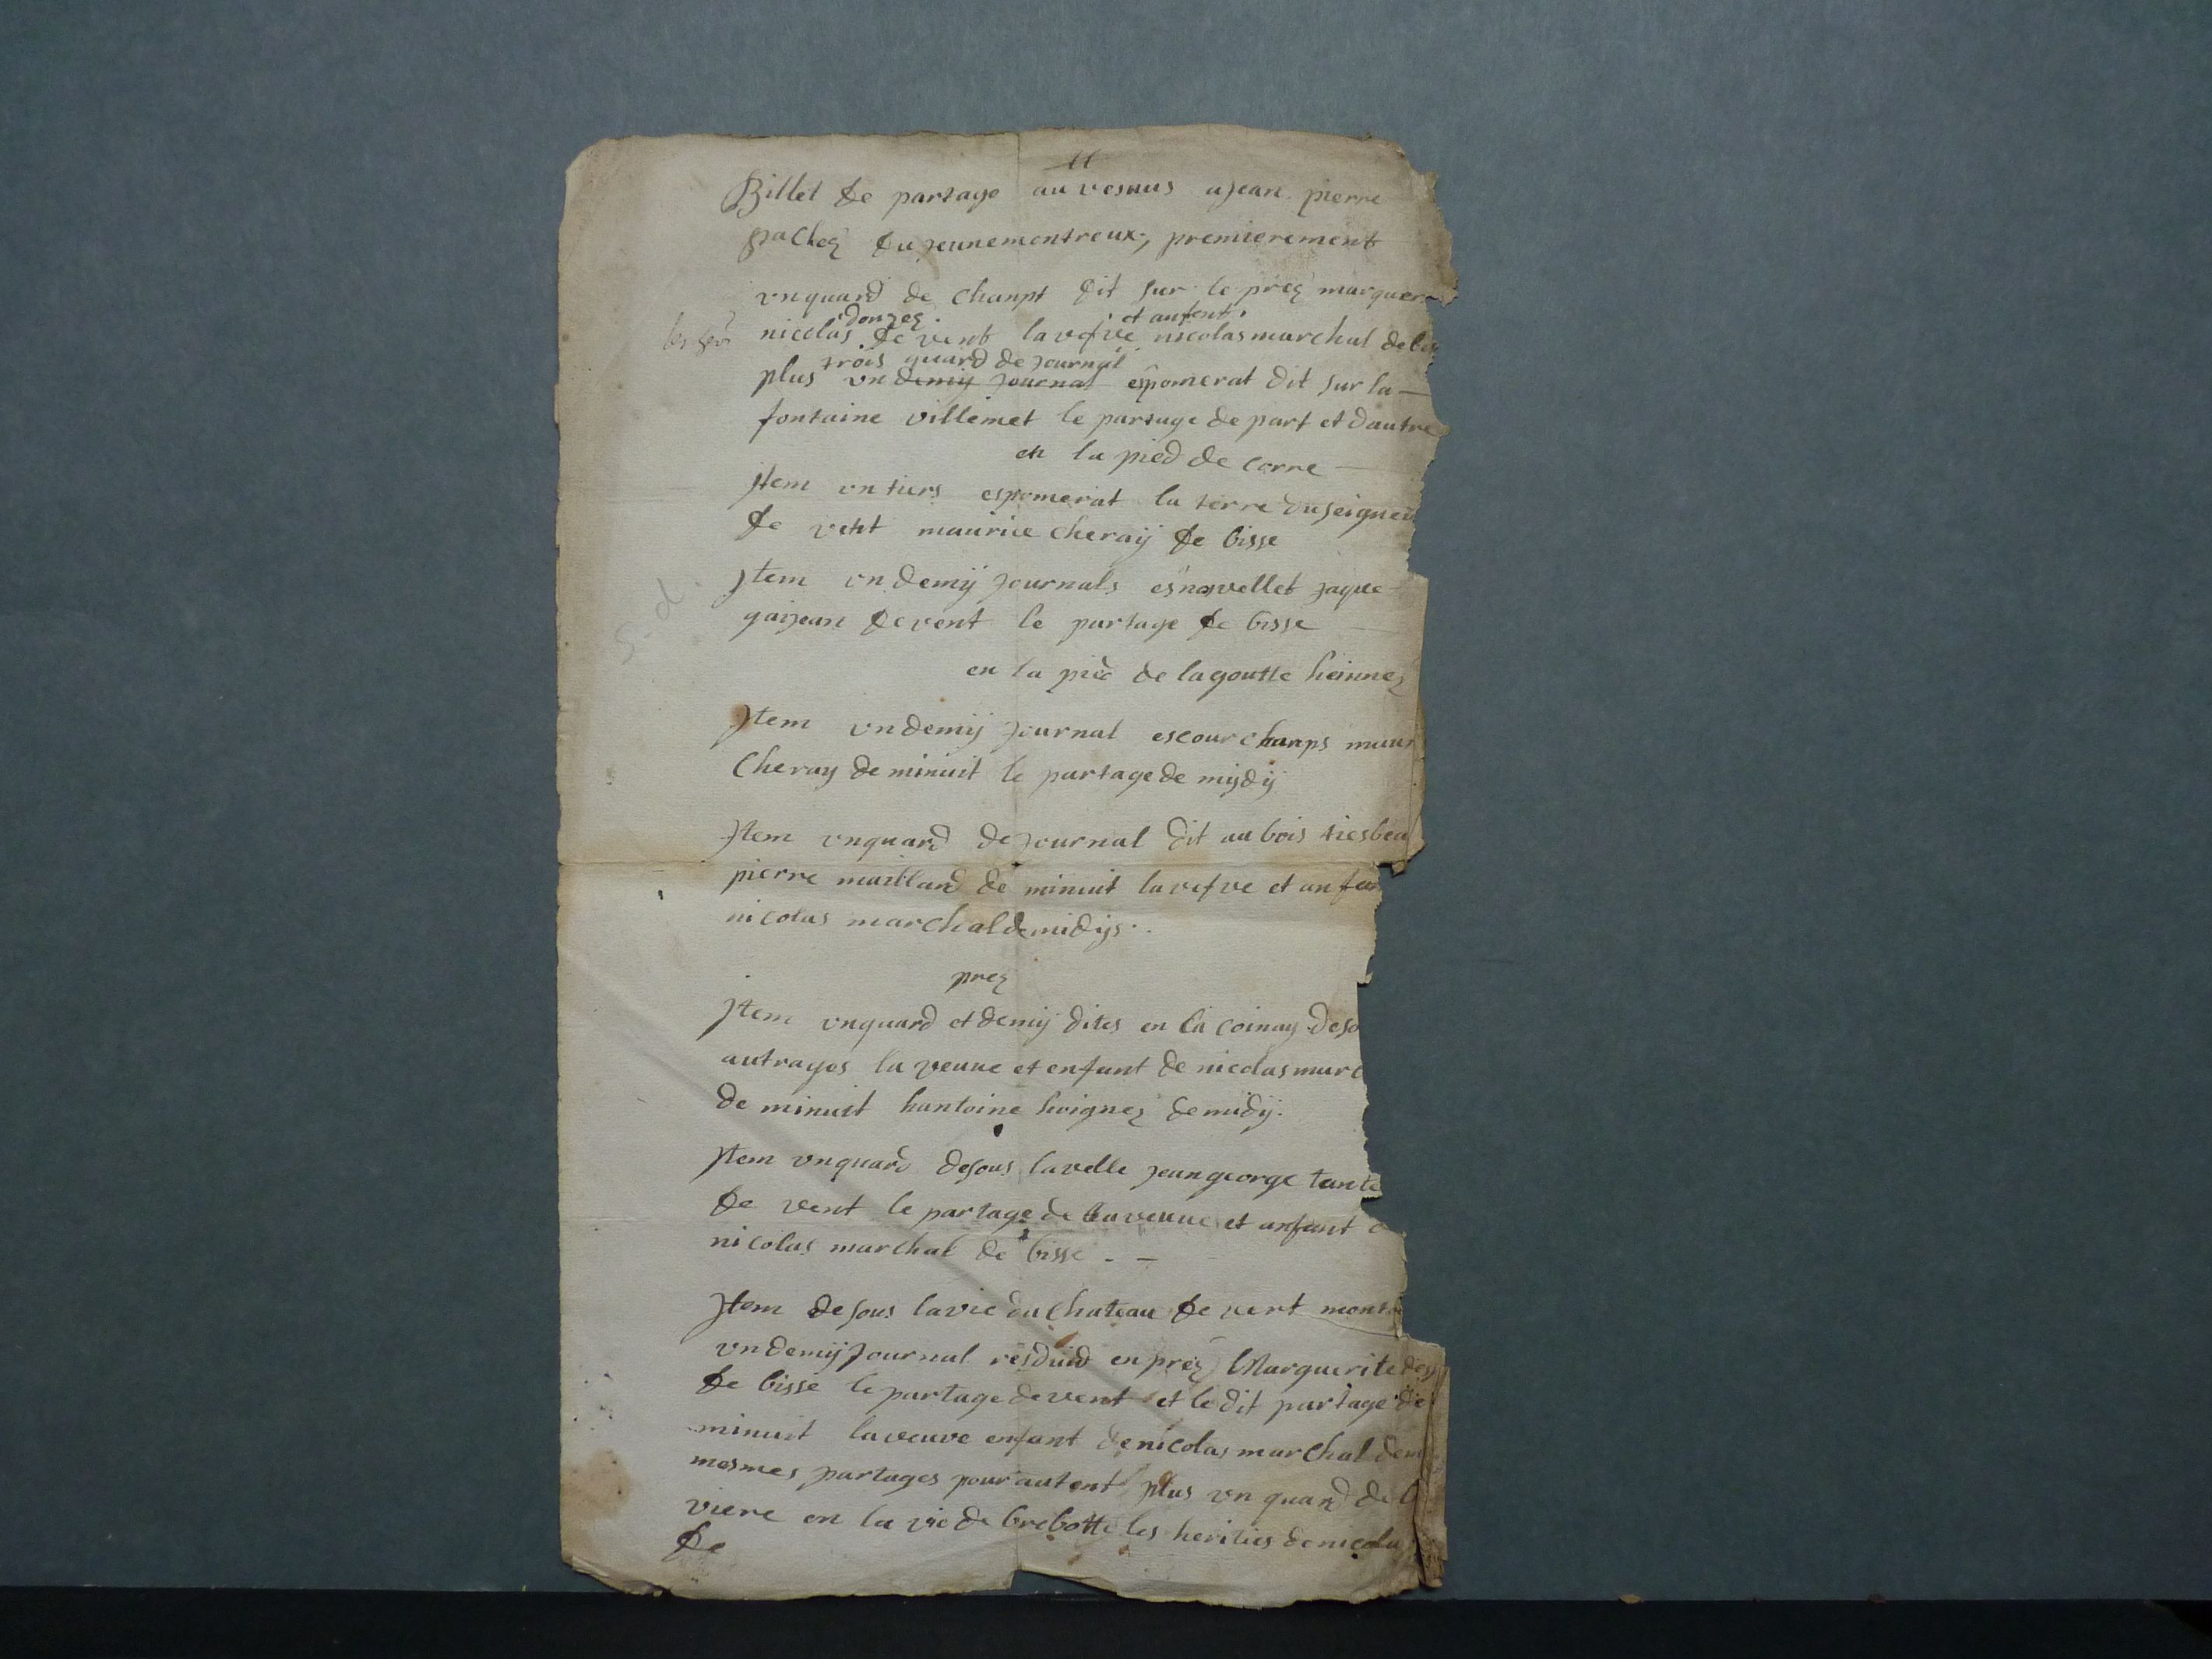 Billet de partage auvesnus a jean pierre
pachez du jeunemontreux, premierement
vnquard de chanpt dit sur le prez marguer
donzez et anfent
nicolas de vent lavefve nicolas marchal de bis
trois quard de journal
plus vn demij journal espomerat dit sur la
fontaine villemet le partage de part et dautre
en la pied de corre
jtem vntiers espomerat la terre duseigneu
de vent maurice cheraij de bisse
jtem vn demij journals esnovellet jaque
gaijean devent le partage de bisse
en la pièe de lagoutte heinnez
jtem vndemij journal escourchamps maur
Cheray deminuit le partage de mijdij
jtem vnquard de journal dit au bois
pierre maillard de minuit lavefve et anfan
nicolas marchal de midijs
prez
jtem vnquard et demij dites en la coinay deso
autrages la veuue et enfant de nicolas marc
de minuit hantoine hoignez demidij.
jtem vnquard desous lavelle jeangeorge tante
de vent le partage de laveuue et anfant d
nicolas marchal de bisse
jtem desous lavie du chateau de vent
vndemij journal résduid en préz Marguerite
de bisse le partage devent et le dit partage de
minuit laveuve enfant de nicolas marchal dem
mesmes partages pour autent plus vn quard de
viere en la vie de brebotte les herities denicola
de